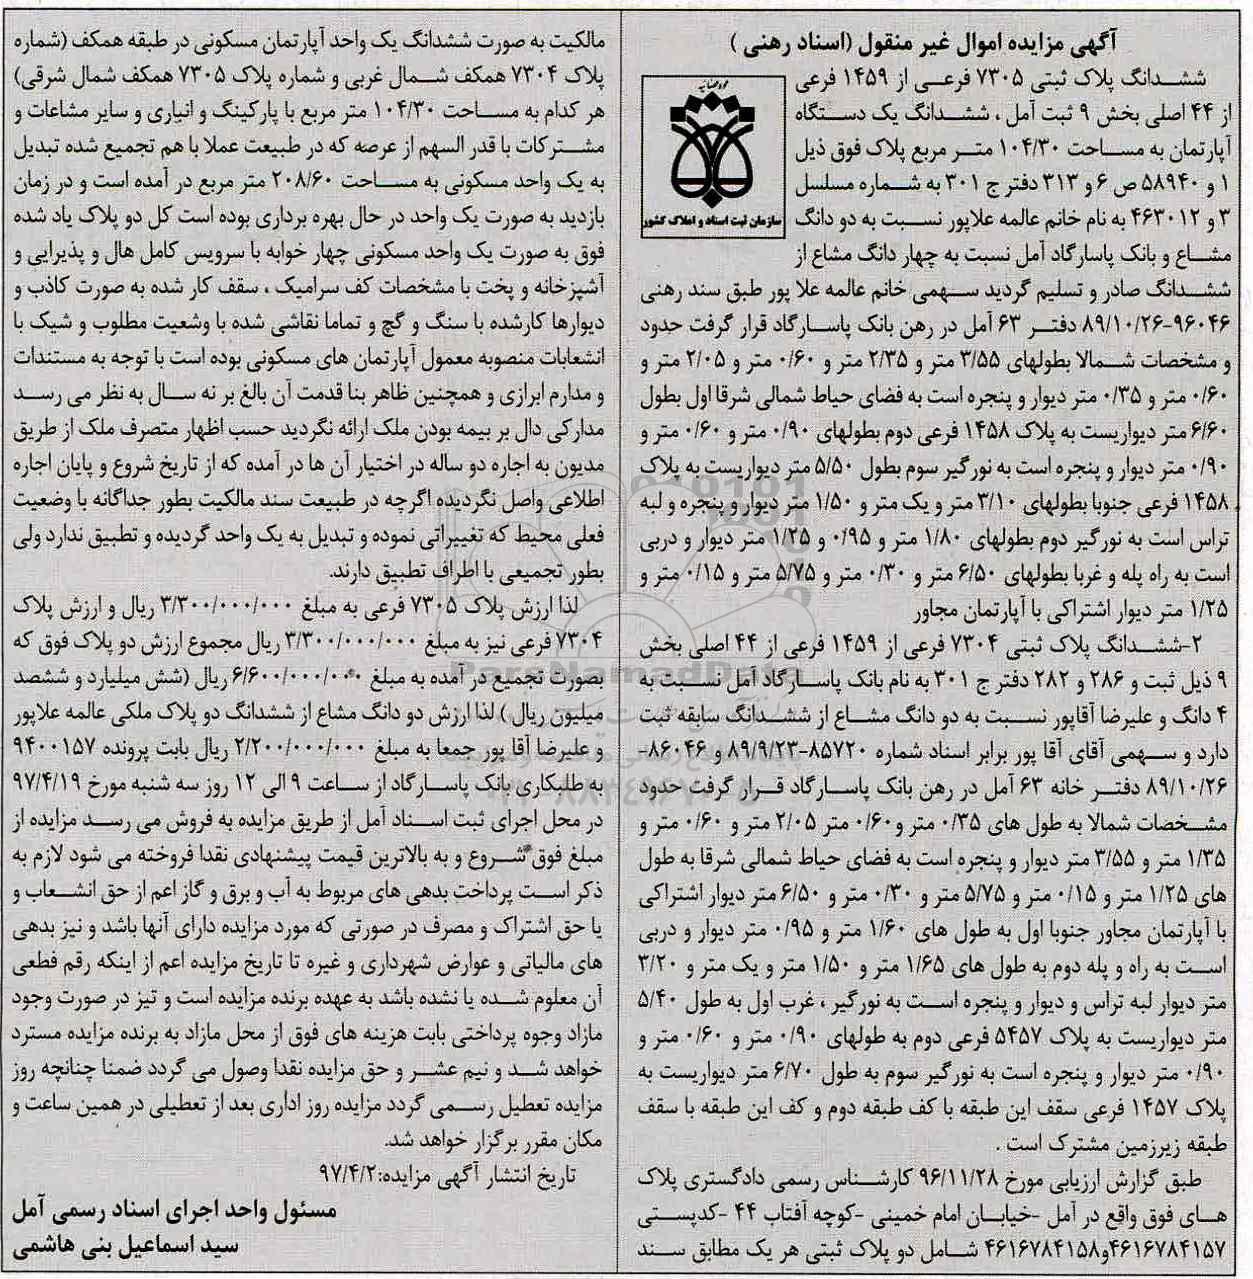 آگهی مزایده اموال غیر منقول (اسناد رهنی)
ششدانگ پلاک ثبتی ۷۳۰۵ فرعی از ۱۴۵۹ فرعی
از ۴۴ اصلی بخش ۹ ثبت آمل، ششدانگ یک دستگاه
آپارتمان به مساحت ۱۰۴/۳۰ متر مربع پلاک فوق ذیل
۱ و ۵۸۹۴۰ ص ۶ و ۳۱۳ دفتر ج ۳۰۱ به شماره مسلسل
۳ و ۴۶۳۰۱۲ به نام خانم عالمه علاپور نسبت به دو دانگ
مشاع و بانک پاسارگاد آمل نسبت به چهار دانگ مشاع از
سازمان ثبت اسناد و املاک کشور
ششدانگ صادر و تسلیم گردید سهمی خانم عالمه علا پور طبق سند رهنی
۹۶۰۴۶-۸۹/۱۰/۲۶ دفتر ۶۳ آمل در رهن بانک پاسارگاد قرار گرفت حدود
و مشخصات شمالا بطولهای ۳/۵۵ متر و ۲/۳۵ متر و ۰/۶۰ متر و ۲/۰۵ متر و
۰/۶۰ متر و ۰/۳۵ متر دیوار و پنجره است به فضای حیاط شمالی شرقا اول بطول
۶/۶۰ متر دیواریست به پلاک ۱۴۵۸ فرعی دوم بطولهای ۰/۹۰ متر و ۰/۶۰ متر و
۰/۹۰ متر دیوار و پنجره است به نورگیر سوم بطول ۵/۵۰ متر دیواریست به پلاک
۱۴۵۸ فرعی جنوبا بطولهای ۳/۱۰ متر و یک متر و ۱/۵۰ متر دیوار و پنجره و لبه
تراس است به نورگیر دوم بطولهای ۱/۸۰ متر و ۰/۹۵ و ۱/۲۵ متر دیوار و دربی
است به راه پله و غربا بطولهای ۶/۵۰ متر و ۰/۳۰ متر و ۵/۷۵ متر و ۰/۱۵ متر و
۱/۲۵ متر دیوار اشتراکی با آپارتمان مجاور
۲-ششدانگ پلاک ثبتی ۷۳۰۴ فرعی از ۱۴۵۹ فرعی از ۴۴ اصلی بخش
۹ ذیل ثبت و ۲۸۶ و ۲۸۲ دفتر ج ۳۰۱ به نام بانک پاسارگاد آمل نسبت به
۴ دانگ و علیرضا آقاپور نسبت به دو دانگ مشاع از ششدانگ سابقه ثبت
دارد و سهمی آقای آقا پور برابر اسناد شماره ۸۵۷۲۰-۸۹/۹/۲۳ و ۸۶۰۴۶-
۸۹/۱۰/۲۶ دفتر خانه ۶۳ آمل در رهن بانک پاسارگاد قرار گرفت حدود
مشخصات شمالا به طول های ۰/۳۵ متر و ۰/۶۰ متر ۲/۰۵ متر و ۰/۶۰ متر و
۱/۳۵ متر و ۳/۵۵ متر دیوار و پنجره است به فضای حیاط شمالی شرقا به طول
های ۱/۲۵ متر و ۰/۱۵ متر و ۵/۷۵ متر و ۰/۳۰ متر و ۶/۵۰ متر دیوار اشتراکی
با آپارتمان مجاور جنوبا اول به طول های ۱/۶۰ متر و ۰/۹۵ متر دیوار و دربی
است به راه و پله دوم به طول های ۱/۶۵ متر و ۱/۵۰ متر و یک متر و ۳/۲۰
متر دیوار لبه تراس و دیوار و پنجره است به نورگیر، غرب اول به طول ۵/۴۰
متر دیواریست به پلاک ۵۴۵۷ فرعی دوم به طولهای ۰/۹۰ متر و ۰/۶۰ متر و
۰/۹۰ متر دیوار و پنجره است به نورگیر سوم به طول ۶/۷۰ متر دیواریست به
پلاک ۱۴۵۷ فرعی سقف این طبقه با کف طبقه دوم و کف این طبقه با سقف
طبقه زیرزمین مشترک است.
طبق گزارش ارزیابی مورخ ۹۶/۱۱/۲۸ کارشناس رسمی دادگستری پلاک
های فوق واقع در آمل -خیابان امام خمینی -کوچه آفتاب ۴۴ -کدپستی
۴۶۱۶۷۸۴۱۵۷و۴۶۱۶۷۸۴۱۵۸ شامل دو پلاک ثبتی هر یک مطابق سند
مالکیت به صورت ششدانگ یک واحد آپارتمان مسکونی در طبقه همکف (شماره
پلاک ۷۳۰۴ همکف شمال غربی و شماره پلاک ۷۳۰۵ همکف شمال شرقی)
هر کدام به مساحت ۱۰۴/۳۰ متر مربع با پارکینگ و انباری و سایر مشاعات و
مشترکات با قدر السهم از عرصه که در طبیعت عملا با هم تجمیع شده تبدیل
به یک واحد مسکونی به مساحت ۲۰۸/۶۰ متر مربع در آمده است و در زمان
بازدید به صورت یک واحد در حال بهره برداری بوده است کل دو پلاک یاد شده
فوق به صورت یک واحد مسکونی چهار خوابه با سرویس کامل هال و پذیرایی و
آشپزخانه و پخت با مشخصات کف سرامیک، سقف کار شده به صورت کاذب و
دیوارها کارشده با سنگ و گچ و تماما نقاشی شده با وشعیت مطلوب و شیک با
انشعابات منصوبه معمول آپارتمان های مسکونی بوده است با توجه به مستندات
و مدارم ابرازی و همچنین ظاهر بنا قدمت آن بالغ بر نه سال به نظر می رسد
مدارکی دال بر بیمه بودن ملک ارائه نگردید حسب اظهار متصرف ملک از طریق
مدیون به اجاره دو ساله در اختیار آن ها در آمده که از تاریخ شروع و پایان اجاره
اطلاعی واصل نگردیده اگرچه در طبیعت سند مالکیت بطور جداگانه با وضعیت
فعلی محیط که تغییراتی نموده و تبدیل به یک واحد گردیده و تطبیق ندارد ولی
بطور تجمیعی با اطراف تطبیق دارند.
لذا ارزش پلاک ۷۳۰۵ فرعی به مبلغ ۳/۳۰۰/۰۰۰/۰۰۰ ریال و ارزش پلاک
۷۳۰۴ فرعی نیز به مبلغ ۳/۳۰۰/۰۰۰/۰۰۰ ریال مجموع ارزش دو پلاک فوق که
بصورت تجمیع در آمده به مبلغ ۶/۶۰۰/۰۰۰/۰۰۰ ریال (شش میلیارد و ششصد
میلیون ریال) لذا ارزش دو دانگ مشاع از ششدانگ دو پلاک ملکی عالمه علاپور
و علیرضا آقا پور جمعا به مبلغ ۲/۲۰۰/۰۰۰/۰۰۰ ریال بابت پرونده ۹۴۰۰۱۵۷
به طلبکاری بانک پاسارگاد از ساعت ۹ الی ۱۲ روز سه شنبه مورخ ۹۷/۴/۱۹
در محل اجرای ثبت اسناد آمل از طریق مزایده به فروش می رسد مزایده از
مبلغ فوق شروع و به بالاترین قیمت پیشنهادی نقدا فروخته می شود لازم به
ذکر است پرداخت بدهی های مربوط به آب و برق و گاز اعم از حق انشعاب و
یا حق اشتراک و مصرف در صورتی که مورد مزایده دارای آنها باشد و نیز بدهی
های مالیاتی و عوارض شهرداری و غیره تا تاریخ مزایده اعم از اینکه رقم قطعی
آن معلوم شده یا نشده باشد به عهده برنده مزایده است و تیز در صورت وجود
مازاد وجوه پرداختی بابت هزینه های فوق از محل مازاد به برنده مزایده مسترد
خواهد شد و نیم عشر و حق مزایده نقدا وصول می گردد ضمنا چنانچه روز
مزایده تعطیل رسمی گردد مزایده روز اداری بعد از تعطیلی در همین ساعت و
مکان مقرر برگزار خواهد شد.
تاریخ انتشار آگهی مزایده:۹۷/۴/۲
مسئول واحد اجرای اسناد رسمی آمل
سید اسماعیل بنی هاشمی
ParsNamadData